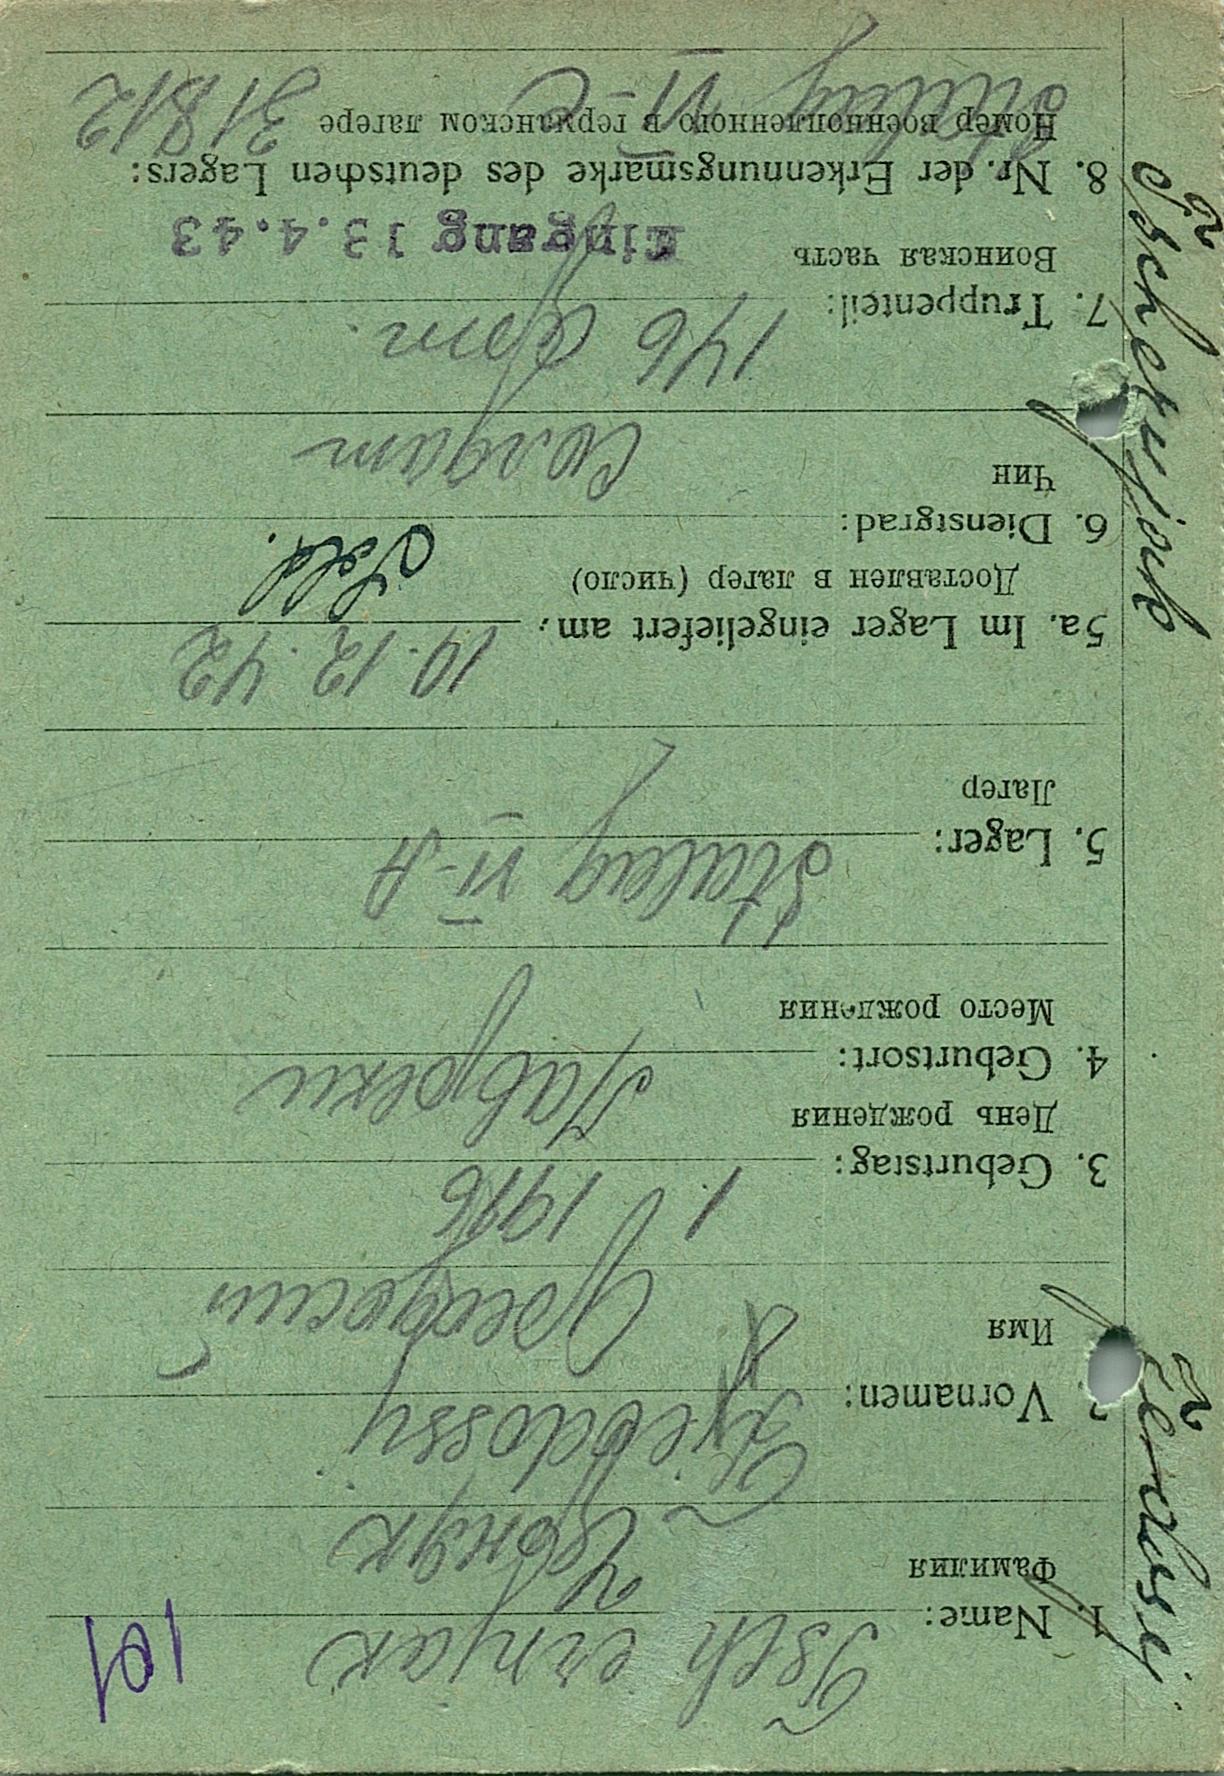 Tschernjak
1. Name:
Фамилия
Fjeodossy
2. Vornamen:
Имя
Феодосий
1. 1916
3. Geburtstag:
День рождения
4. Geburtsort:
Место рождения
Stalag VI-A
5. Lager:
Лагерь
10.12.42
5a. Im Lager eingeliefert am:
Доставлен в лагерь (число)
Sold.
6. Dienstgrad:
Чин
Солдат
146
7. Truppenteil:
Воинская часть
Eingang 13.4.43
8. Nr. der Erkennungsmarke des deutschen Lagers:
Номер военнопленного в германском лагере
31812
Stalag VI-C
tot
Tschernjak